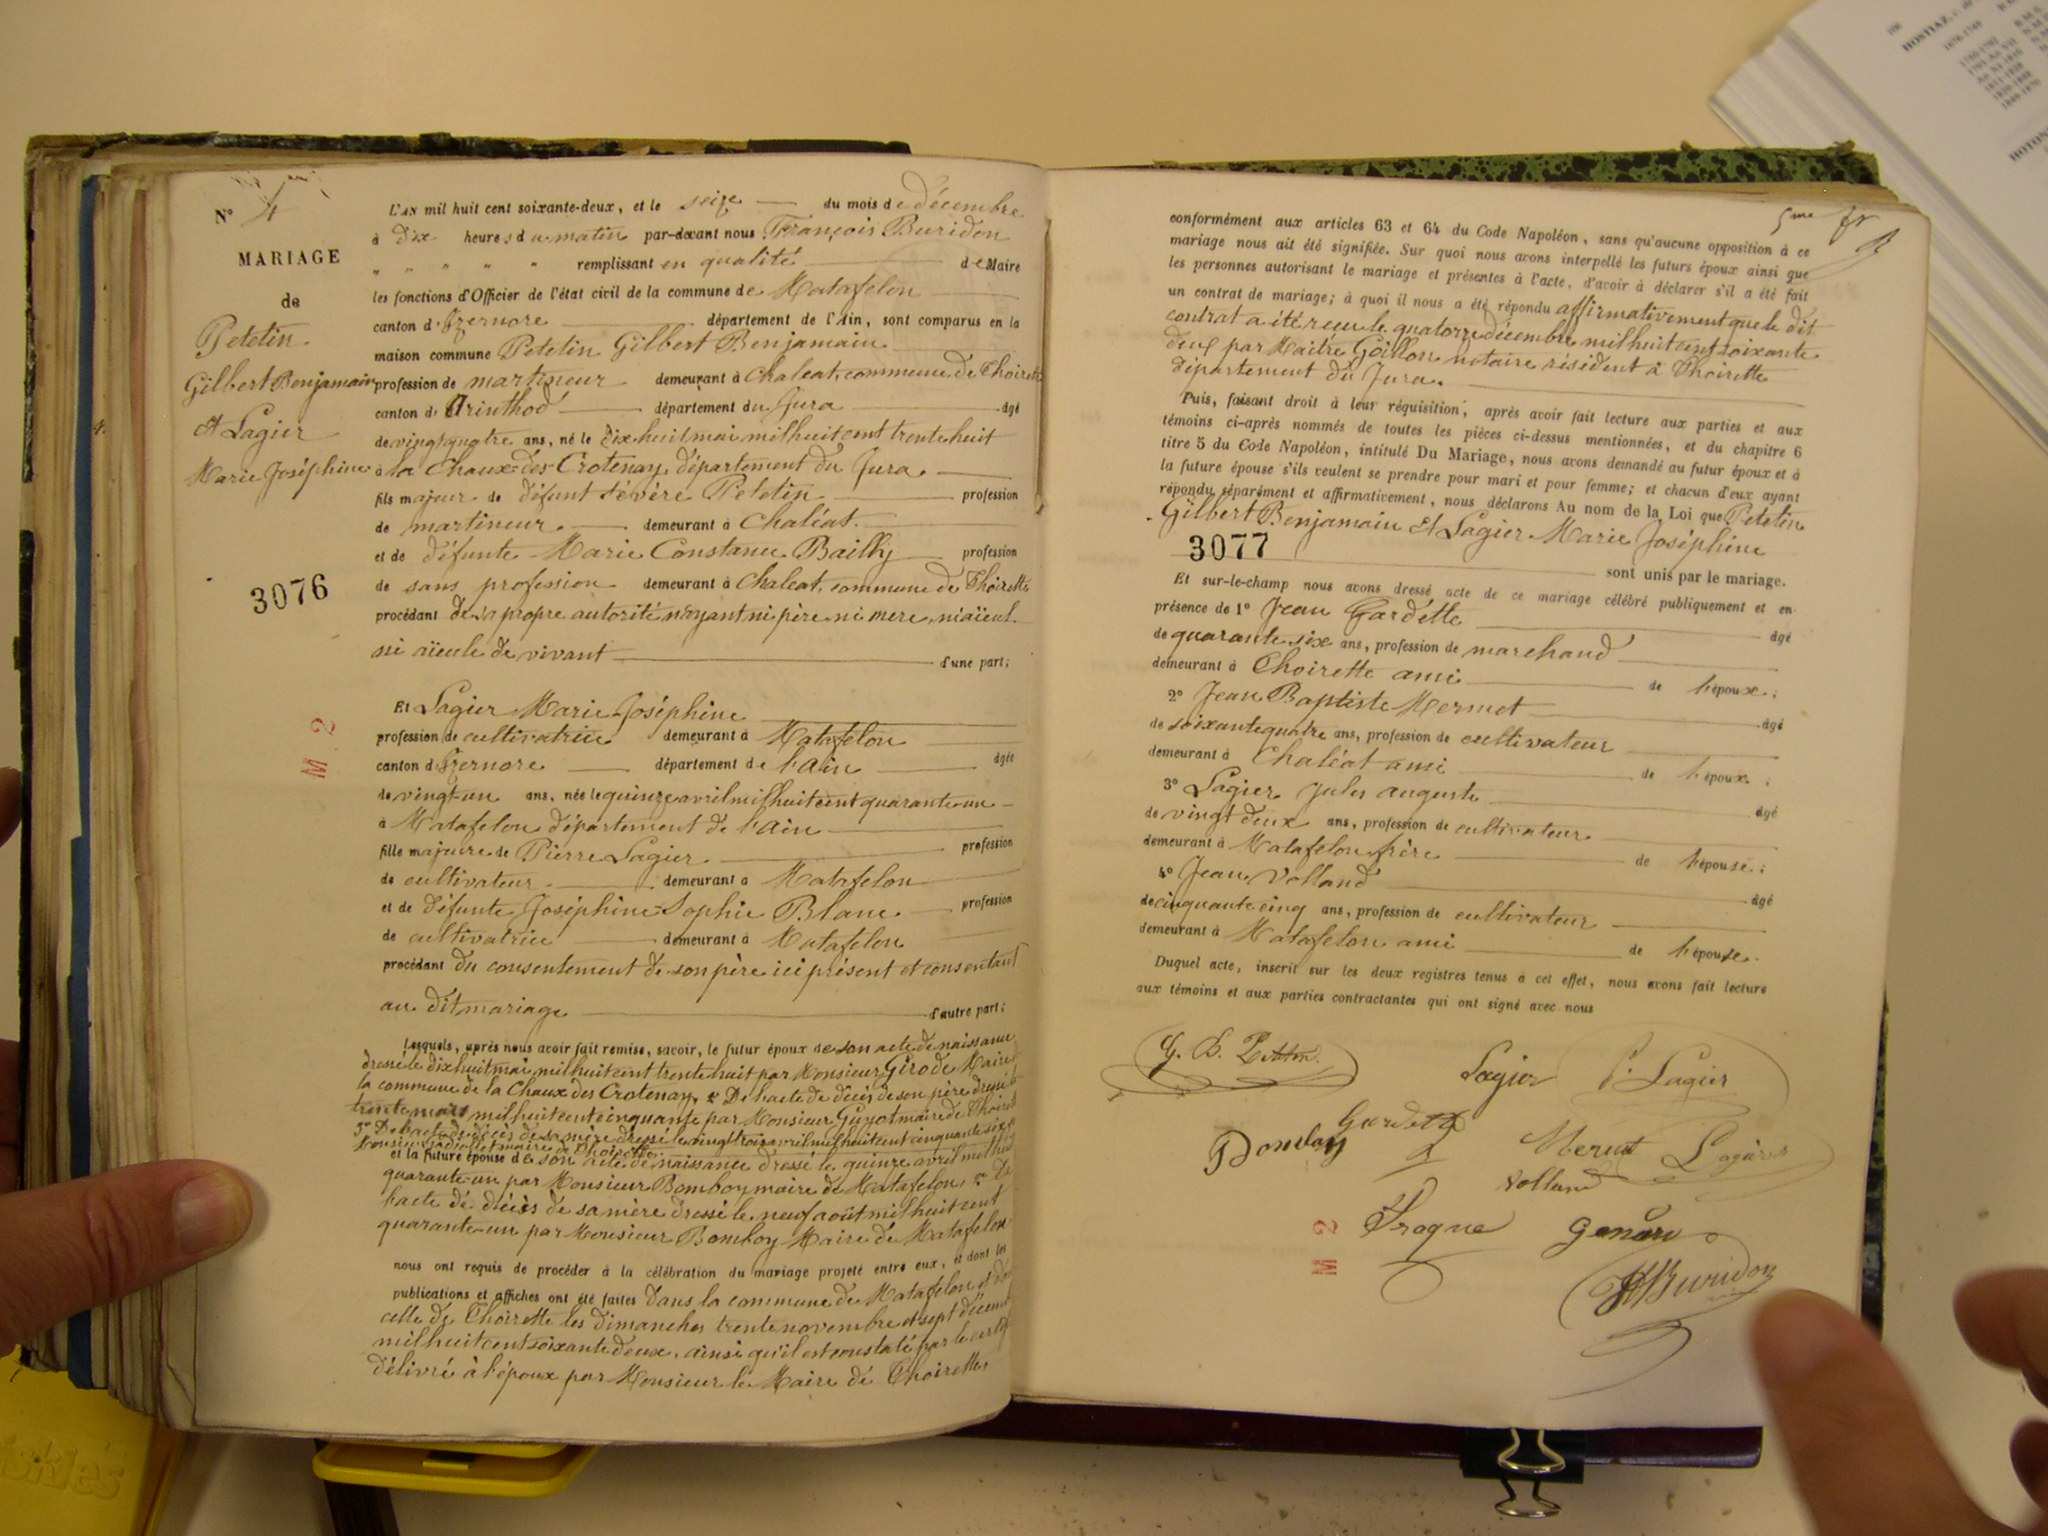 N° 4
MARIAGE
de
Petetin
Gilbert Benjamain
et Lagier
Marie Joséphine
3076
M 2
L'AN mil huit cent soixante-deux, et le seize du mois de décembre
à dix heures du matin par-devant nous François Buridon
" " " " " remplissant en qualité de Maire
les fonctions d'Officier de l'état civil de la commune de Matafelon
canton d'Izernore département de l'Ain, sont comparus en la
maison commune Petetin Gilbert Benjamain
profession de martineur demeurant à Chaleat, commune de Thoirette
canton d'Arinthod département du Jura âgé
de vingt quatre ans, né le dix huit mai mil huit cent trente huit
à la Chaux-des-Crotenay, département du Jura.
fils majeur de défunt Sévère Petetin profession
de martineur. demeurant à Chaléat.
et de défunte Marie Constance Bailly profession
de sans profession demeurant à Chaleat, commune de Thoirette
procédant de sa propre autorité n'ayant ni père ni mere, ni aïeul
ni aïeule de vivant d'une part;
Et Lagier Marie Joséphine
profession de cultivatrice demeurant à Matafelon
canton d'Izernore département de l'Ain âgée
de vingt-un ans, née le quinze avril mil huit cent quarante-un
à Matafelon département de l'Ain
fille majeure de Pierre Lagier profession
de cultivateur demeurant à Matafelon
et de défunte Joséphine-Sophie Blanc profession
de cultivatrice demeurant à Matafelon
procédant du consentement de son père ici présent et consentant
au dit mariage d'autre part;
Lesquels, après nous avoir fait remise, savoir, le futur époux de son acte de naissance
dressé le dix huit mai mil huit cent trente huit par Monsieur Girod Maire
la commune de la Chaux des Crotenay, 2° De l'acte de décès de son père dressé le
trente mars mil huit cent cinquante par Monsieur Guyot maire de Thoirette
3° De l'acte de décès de sa mère dressé le vingt trois avril mil huit cent cinquante six
Monsieur maire de Thoirette.
et la future épouse de son acte de naissance dressé le quinze avril mil huit
quarante-un par Monsieur Bomboy maire de Matafelon, 2° De
l'acte de décès de sa mère dressé le neuf août mil huit cent
quarante-un par Monsieur Bomboy Maire de Matafelon
nous ont requis de procéder à la célébration du mariage projeté entre eux, et dont les
publications et affiches ont été faites dans la commune de Matafelon et dans
celle de Thoirette les dimanches trente novembre et sept décembre
mil huit cent soixante deux, ainsi qu'il est constaté par le certificat
délivré à l'époux par Monsieur le Maire de Thoirette
5me
conformément aux articles 63 et 64 du Code Napoléon, sans qu'aucune opposition à ce
mariage nous ait été signifiée. Sur quoi nous avons interpellé les futurs époux ainsi que
les personnes autorisant le mariage et présentes à l'acte, d'avoir à déclarer s'il a été fait
un contrat de mariage; à quoi il nous a été répondu affirmativement que le dit
contrat a été reçu le quatorze décembre mil huit cent soixante
deux par Maitre Goillon notaire résident à Thoirette
département du Jura.
Puis, faisant droit à leur réquisition, après avoir fait lecture aux parties et aux
témoins ci-après nommés de toutes les pièces ci-dessus mentionnées, et du chapitre 6
titre 5 du Code Napoléon, intitulé Du Mariage, nous avons demandé au futur époux et à
la future épouse s'ils veulent se prendre pour mari et pour femme; et chacun d'eux ayant
répondu séparément et affirmativement, nous déclarons Au nom de la Loi que Petetin
Gilbert Benjamain et Lagier Marie Joséphine
3077
sont unis par le mariage.
Et sur-le-champ nous avons dressé acte de ce mariage célébré publiquement et en
présence de 1° Jean Gardette âgé
de quarante six ans, profession de marchand
demeurant à Thoirette ami de l'époux;
2° Jean Baptiste Mermet âgé
de soixante quatre ans, profession de cultivateur
demeurant à Chaléat ami de l'époux;
3° Lagier Jules auguste âgé
de vingt deux ans, profession de cultivateur
demeurant à Matafelon frère de l'épouse;
4° Jean Volland âgé
de cinquante cinq ans, profession de cultivateur
demeurant à Matafelon ami de l'épouse.
Duquel acte, inscrit sur les deux registres tenus à cet effet, nous avons fait lecture
aux témoins et aux parties contractantes qui ont signé avec nous
G. B. Petetin
Lagier
P. Lagier
Gardette
Bomboy
Mermet
Lagier
Volland
Buridon
M 2
HOSTIAZ